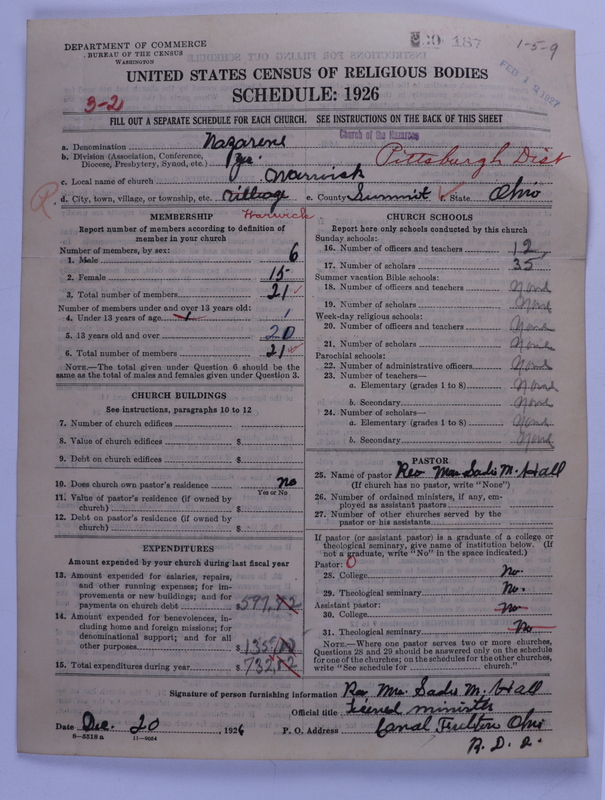 DEPARTMENT OF COMMERCE
BUREAU OF THE CENSUS
WASHINGTON
187
1-5-9
UNITED STATES CENSUS OF RELIGIOUS BODIES
SCHEDULE: 1926
3-2
FILL OUT A SEPARATE SCHEDULE FOR EACH CHURCH. SEE INSTRUCTIONS ON THE BACK OF THIS SHEET
a. Denomination Nazarene
Church of the Nazarene
b. Division (Association, Conference,
Diocese, Presbytery, Synod, etc.) Yes. Pittsburgh Dist
c. Local name of church Warwick
d. City, town, village, or township, etc. Village e. County Summit f. State Ohio
MEMBERSHIP
Warwick
Report number of members according to definition of
member in your church
Number of members, by sex:
1. Male 6
2. Female 15
3. Total number of members 21
Number of members under and over 13 years old:
4. Under 13 years of age 1
5. 13 years old and over 20
6. Total number of members 21
NOTE.—The total given under Question 6 should be
the same as the total of males and females given under Question 3.
CHURCH BUILDINGS
See instructions, paragraphs 10 to 12
7. Number of church edifices
8. Value of church edifices $
9. Debt on church edifices $
10. Does church own pastor's residence No
Yes or No
11. Value of pastor's residence (if owned by
church) $
12. Debt on pastor's residence (if owned by
church) $
EXPENDITURES
Amount expended by your church during last fiscal year
13. Amount expended for salaries, repairs,
and other running expenses; for im-
provements or new buildings; and for
payments on church debt $597,92
14. Amount expended for benevolences, in-
cluding home and foreign missions; for
denominational support; and for all
other purposes $135
15. Total expenditures during year $732
CHURCH SCHOOLS
Report here only schools conducted by this church
Sunday schools:
16. Number of officers and teachers 12
17. Number of scholars 35
Summer vacation Bible schools:
18. Number of officers and teachers None
19. Number of scholars None
Week-day religious schools:
20. Number of officers and teachers None
21. Number of scholars None
Parochial schools:
22. Number of administrative officers None
23. Number of teachers—
a. Elementary (grades 1 to 8) None
b. Secondary None
24. Number of scholars—
a. Elementary (grades 1 to 8) None
b. Secondary None
PASTOR
25. Name of pastor Rev Mrs Sadie M. Hall
(If church has no pastor, write "None")
26. Number of ordained ministers, if any, em-
ployed as assistant pastors
27. Number of other churches served by the
pastor or his assistants
If pastor (or assistant pastor) is a graduate of a college or
theological seminary, give name of institution below. (If
not a graduate, write "No" in the space indicated.)
Pastor: 0
28. College No.
29. Theological seminary No.
Assistant pastor:
30. College No
31. Theological seminary No
NOTE.—Where one pastor serves two or more churches,
Questions 28 and 29 should be answered only on the schedule
for one of the churches; on the schedules for the other churches,
write "See schedule for church."
Signature of person furnishing information Rev Mrs. Sadie M. Hall
Official title Licened minister
Date Dec. 20, 1926 P. O. Address Canal Fulton Ohio
8-5318 a 11-9084
R. D. 2.